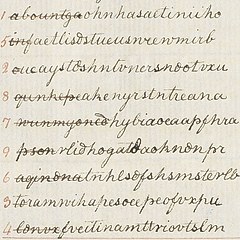 1 abountgaohnhasaetiniiho
5 infaetlisdstueusnvewmirb
2 eucaystdshntvnersndotvxu
8 qunhepeahenyrstntreana
7 wunmyoncdhybiaoeaapfhra
9 psonrlidhogatdaohndnpr
6 ayindnalnhlsdfshsmsterlb
3 toramvihapesocepeofvxpu
4 lonvxfveitinamttriovtslm